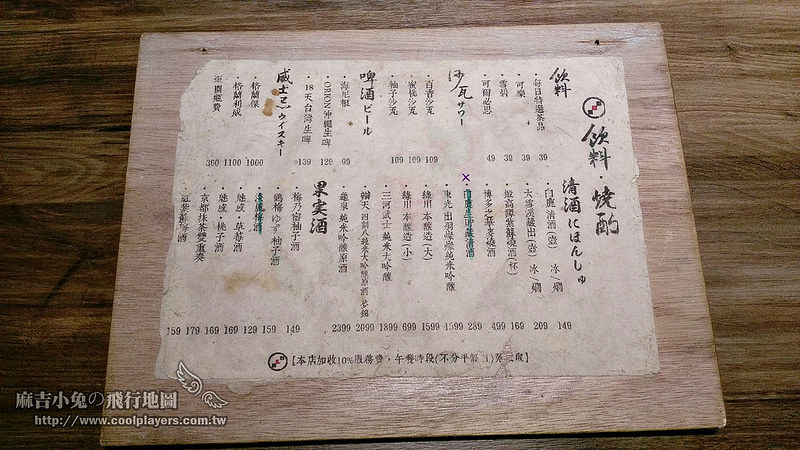 飲料・燒酌
飲料
・每日特選茶品 39
・可樂 39
・雪碧 39
・可爾必思 49
沙瓦 サワー
・百香沙瓦 109
・蜜桃沙瓦 109
・柚子沙瓦 109
啤酒 ビール
・海尼根 99
・ORION沖繩生啤 129
・18天台灣生啤 139
威士忌 ウイスキー
・格蘭傑 1000
・格蘭利威 1100
※開瓶費 300
清酒にほんしゅ
・白鹿 清酒(壺) 冰/燗 149
・大雪渓蔵出(壺) 冰/燗 209
・飯高譯紫蘇燒酒(杯) 169
・博多之華麥燒酒 499
・白鹿生貯蔵清酒 289
・東光出羽燦燦純米吟釀 1599
・綠川 本釀造(大) 1599
・綠川 本釀造(小) 699
・三河武士 純米大吟釀 1899
・辯天 純米大吟釀原酒 2099
・龜泉 純米吟釀原酒 2399
果実酒
・梅乃宿柚子酒 149
・鶴梅ゆず柚子酒 159
梅酒 129
・魅惑・草莓酒 169
・魅惑・桃子酒 169
・京都抹茶雙重奏 179
・紅紫蘇梅酒 159
【本店加收10%服務費・午餐時段(不分平假日)
麻吉小兔の飛行地圖
http://www.coolplayers.com.tw